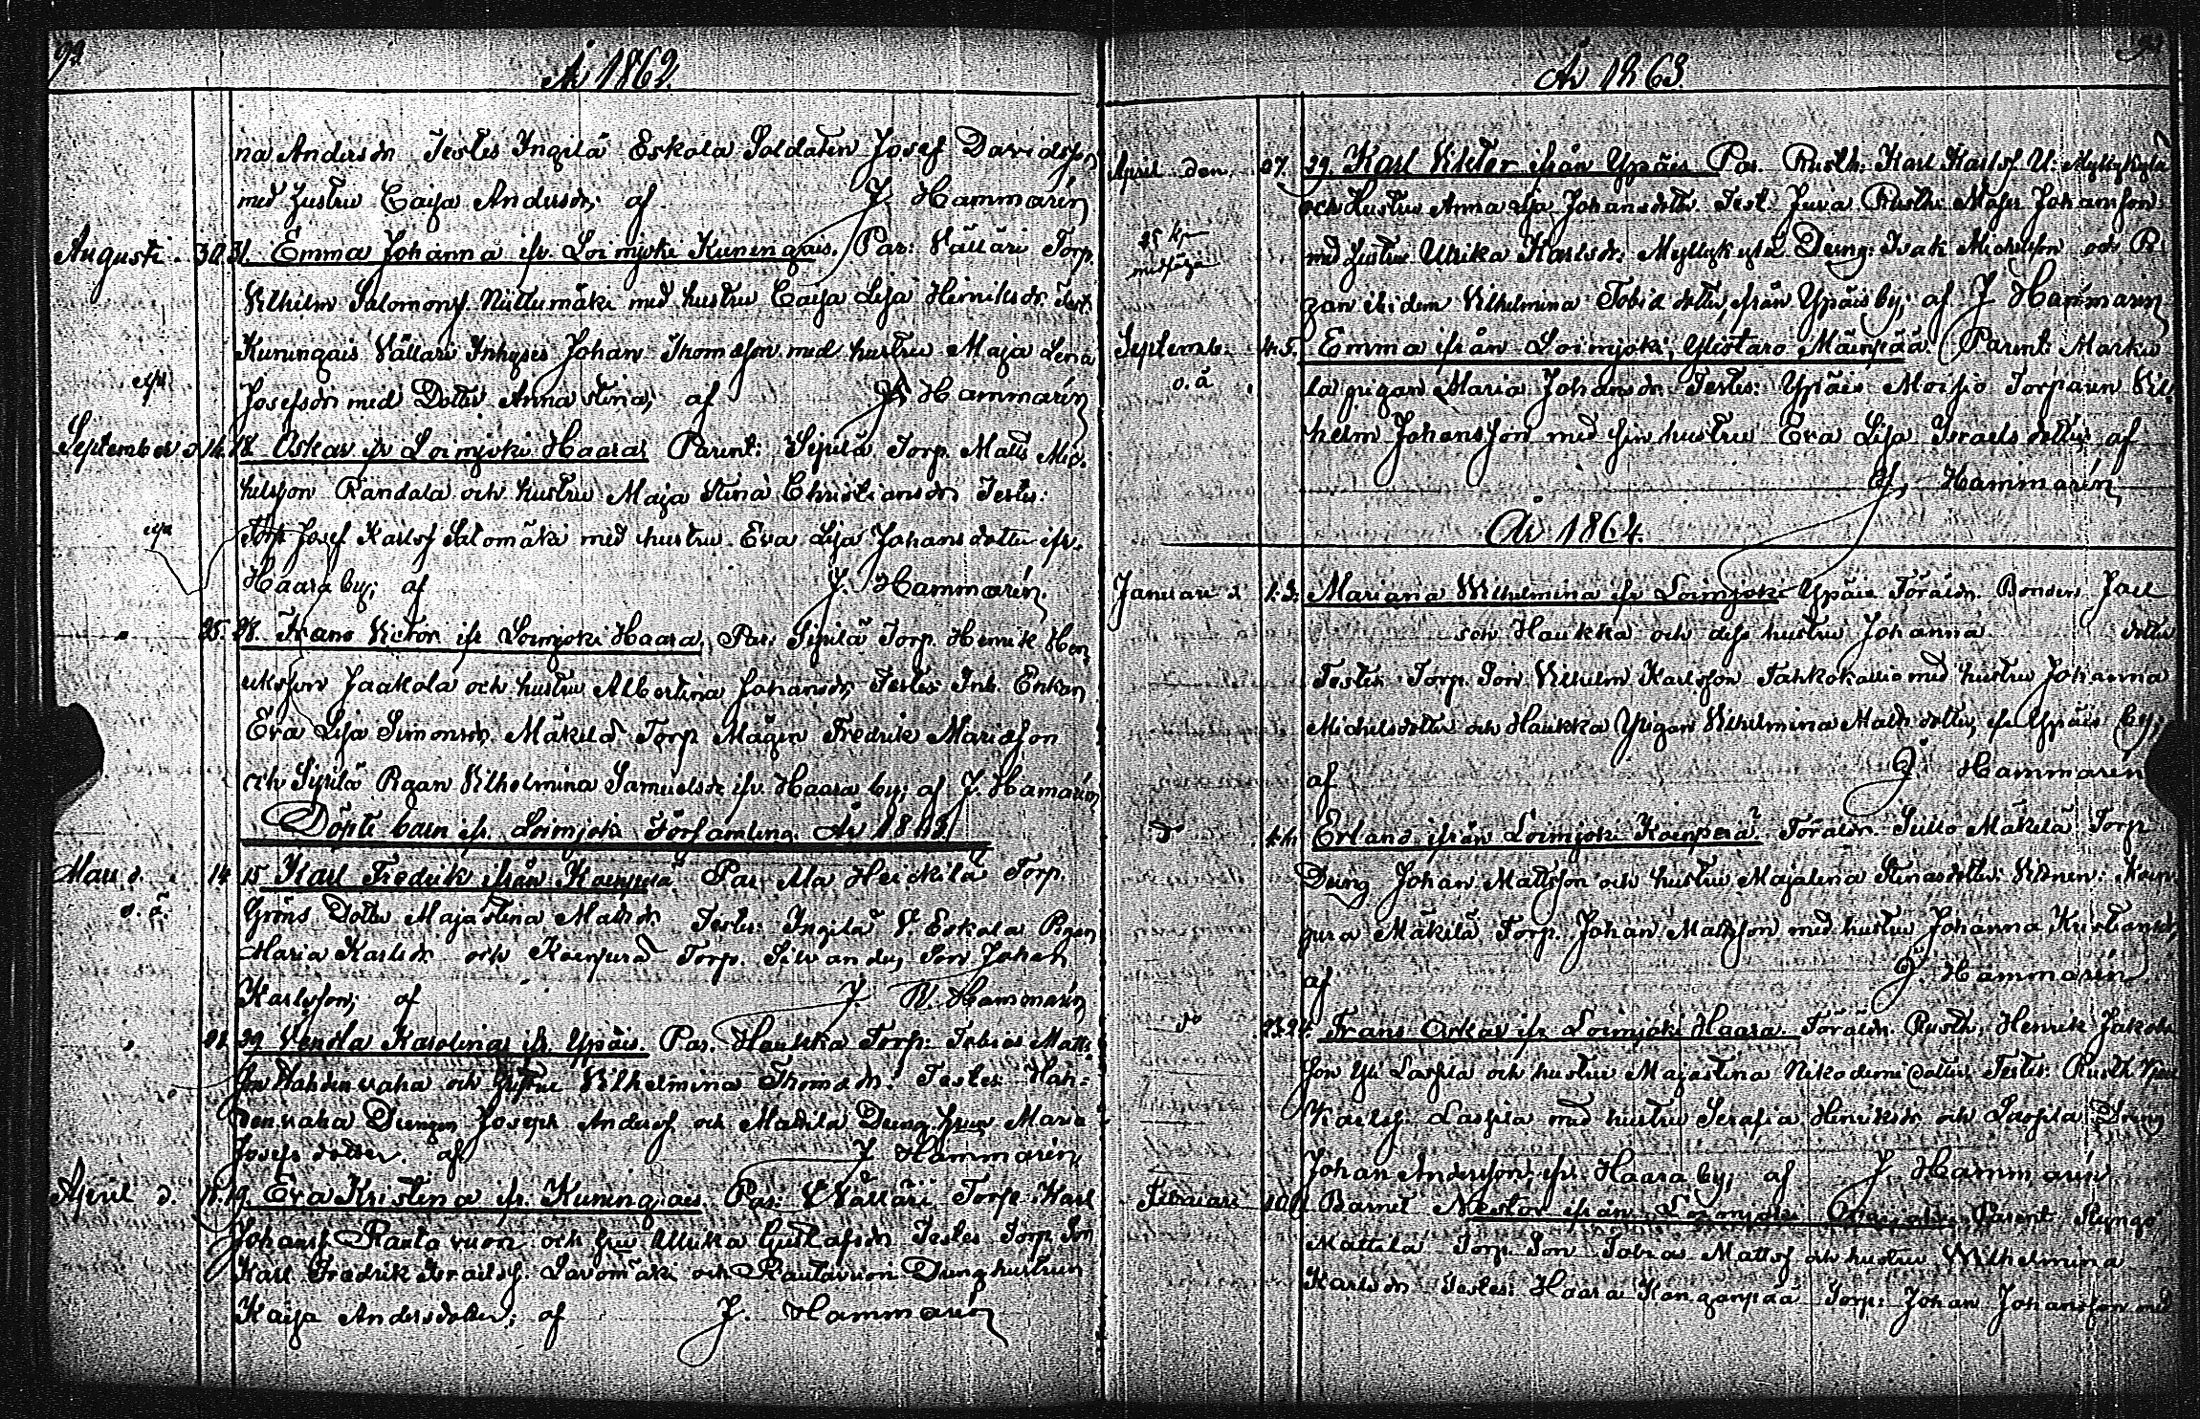 92
År 1862.
na Andersdr Testes Ingilä Eskola Soldaten Josef Davidsson
med hustru Caisa Andersdr; af J. Hammarén
Augusti 30. 31. Emma Johanna ifr. Loimijoki Kuningais. Par: Välläri Torp.
Vilhelm Salomonss. Niittumäki med hustru Caisa Lisa Henriksdr Test:
Kuningais Vällari Inhyses Johan Thomasson med hustru Maja Lena
Josefsdr med Dotter Anna Stina; af J. Hammarén
September d. 14. 18. Oskar ifr Loimijoki Haara Parent: Sipilä Torp. Matts Mic-
helsson Randala och hustru Maja Stina Christiansdr Testes:
Torp Josef Karlss Salomäki med hustru Eva Lisa Johansdotter ifr.
Haara by; af J. Hammarén.
" 25. 28. Frans Victor ifr Loimijoki Haara, Par: Sipilä Torp. Henrik Hen-
riksson Jaakola och hustru Albertina Johansdr, Testes: Inh. Enkan
Eva Lisa Simonsdr. Mäkilä Torp Mågen Fredrik
och Sipilä Pigan Vilhelmina Samuelsdr ifr. Haara by; af J. Hamarén
Döpte barn ifr. Loimijoki Församling År 1863.
Mars d. 14 15 Karl Fredrik ifrån Koenperä. Par. Ala Heickilä Torp.
o. å. Gröns Dotter Maja Stina Matsdr Testes: Ingilä V. Eskola Pigan
Maria Karlsdr och Koenperä Torp. Son Johan
Karlsson; af J. W. Hammarén
" 28. 29 Venda Karolina ifr. Ypäis. Par. Haukka Torp: Tobias Matts-
son Hahdenvaha och hustru Vilhelmina Thomasdr. Testes: Hah-
denvaha Drengen Joseph Anderss och Mattila Dreng. hru Maria
Josefsdotter. af J Hammarén,
April d. 15. 19. Eva Kristina ifr. Kuningais Par: Wällärï Torp. Karl
Johanss. Rautavuori och hru Ullrika Gustafsdr Testes Torp. Son
Karl Fredrik Israelss. Savomäki och Rautavuori Dreng hustrun
Kaisa Andersdotter; af J. Hammarén
År 1863.
April den 27. 29. Karl Victor ifrån Ypäis Par. Rusth: Karl Karlss U: Myllykylä
och Hustru Anna Lisa Johansdotter. Test. Juva Rusth: Johansson
med hustru Ulrika Karlsdr: Myllykylä Dreng: Isak Michelsson och Pi
gan ibidem Vilhelmina Tobiasdotter, ifrån Ypäis by; af J Hammarén
Septembr. 4. 5. Emma ifrån Loimijoki, Ylistaro Mäenpää. Parent: Marku
o. å la pigan Maria Johansdr. Testes: Ypäis Moisio Torparen Vil-
helm Johansson med sin hustru Eva Lisa Israelsdotter; af
J, Hammarén,
År 1864.
Januari d. 1. 3. Mariana Vilhelmina ifr Loimijoki Ypäis Föräldr. Bonden
Haukka och dess hustru Johanna dotter
Testes: Torp. Son Vilhelm Karlsson Tahkokallio med hustru Johanna
Michelsdotter och Haukka Pigan Vilhelmina Matsdotter, ifr Ypäis by;
af J Hammarén
do 4. Erland ifrån Loimijoki Koenperä Föräldr. Mäkilä Torp
Dreng Johan Mattsson och hustru Majalena Stinasdotter. Koen-
pera Mäkilä Torp. Johan Mattsson med hustru Johanna Kristiansdr,
af J. Hammarén
do 23. 24. Frans Oskar ifr Loimijoki Haara. Föräldr. Rusth. Henrik Jakobs
son Yli Laspila och hustru Majastina Nikodemidotter. Testes: Rusth.
Karlss. Laspila med hustru Serafia Henriksdr och Laspila Dreng
Johan Andersson, ifr. Haara by; af J Hammarén
Februari 10. Barnet Nestor ifrån Loimijoki Parent.
Mattila Torp Son Tobias Mattss och hustru Wilhelmina
Karlsdr Testes: Haara Kanganpää Torp: Johan Johansson med